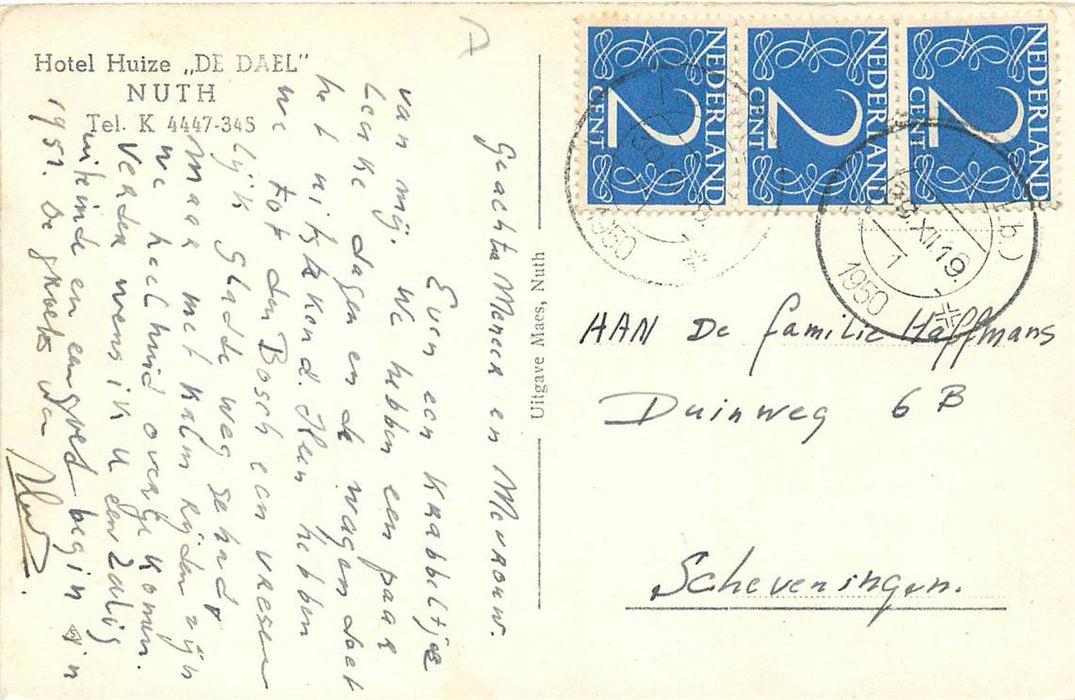 Hotel Huize „DE DAEL"
NUTH
Tel. K 4447-345
A
Geachte Meneer en Mevrouw.
Even een Krabbeltje
van mij. We hebben een paar
Leuke dagen en de wagen doet
het uitstekend. Heen hebben
we tot den Bosch een vresen
lijk gladde weg gehad
maar met kalm rijden zijn
we heelhuid over gekomen.
Verder wens ik u een Zalig
uiteinde en een goed begin in
1951. De groeten van
Uitgave Maes, Nuth
NEDERLAND
2
CENT
NEDERLAND
2
CENT
NEDERLAND
2
CENT
1950
29.XII.19
1950
AAN De familie Haffmans
Duinweg 6 B
Scheveningen.